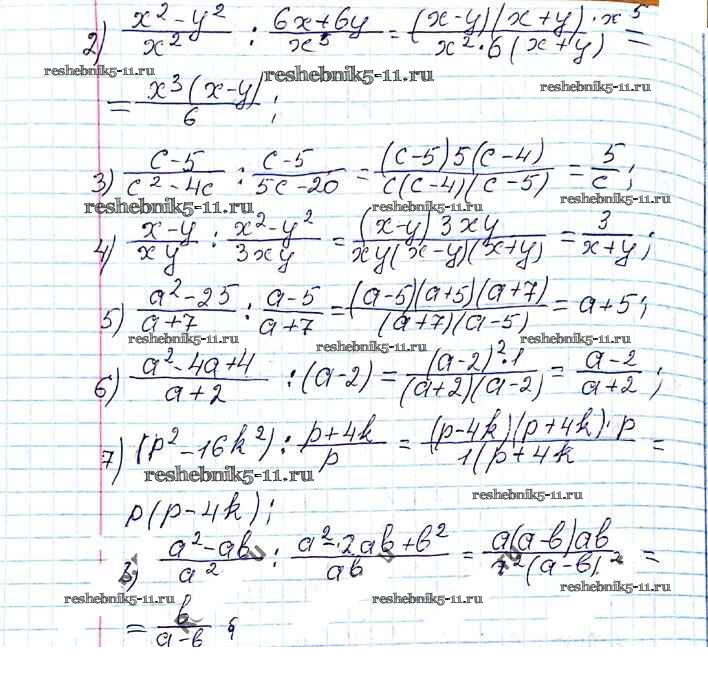 2) (x² - y²)/x² : (6x + 6y)/x⁵ = ((x-y)(x+y)·x⁵)/(x²·6(x+y)) =
reshebnik5-11.ru reshebnik5-11.ru reshebnik5-11.ru
= x³(x-y)/6 ;
3) (c-5)/(c²-4c) : (c-5)/(5c-20) = ((c-5)5(c-4))/(c(c-4)(c-5)) = 5/c ;
reshebnik5-11.ru reshebnik5-11.ru reshebnik5-11.ru
4) (x-y)/(xy) : (x²-y²)/(3xy) = ((x-y)3xy)/(xy(x-y)(x+y)) = 3/(x+y) ;
5) (a²-25)/(a+7) : (a-5)/(a+7) = ((a-5)(a+5)(a+7))/((a+7)(a-5)) = a+5 ;
reshebnik5-11.ru reshebnik5-11.ru
6) (a²-4a+4)/(a+2) : (a-2) = ((a-2)²·1)/((a+2)(a-2)) = (a-2)/(a+2) ;
7) (p²-16k²) : (p+4k)/p = ((p-4k)(p+4k)·p)/(1(p+4k) =
reshebnik5-11.ru reshebnik5-11.ru
p(p-4k) ;
(a²-ab)/a² : (a²-2ab+b²)/(ab) = (a(a-b)ab)/(a²(a-b)²) =
reshebnik5-11.ru reshebnik5-11.ru reshebnik5-11.ru
= b/(a-b)